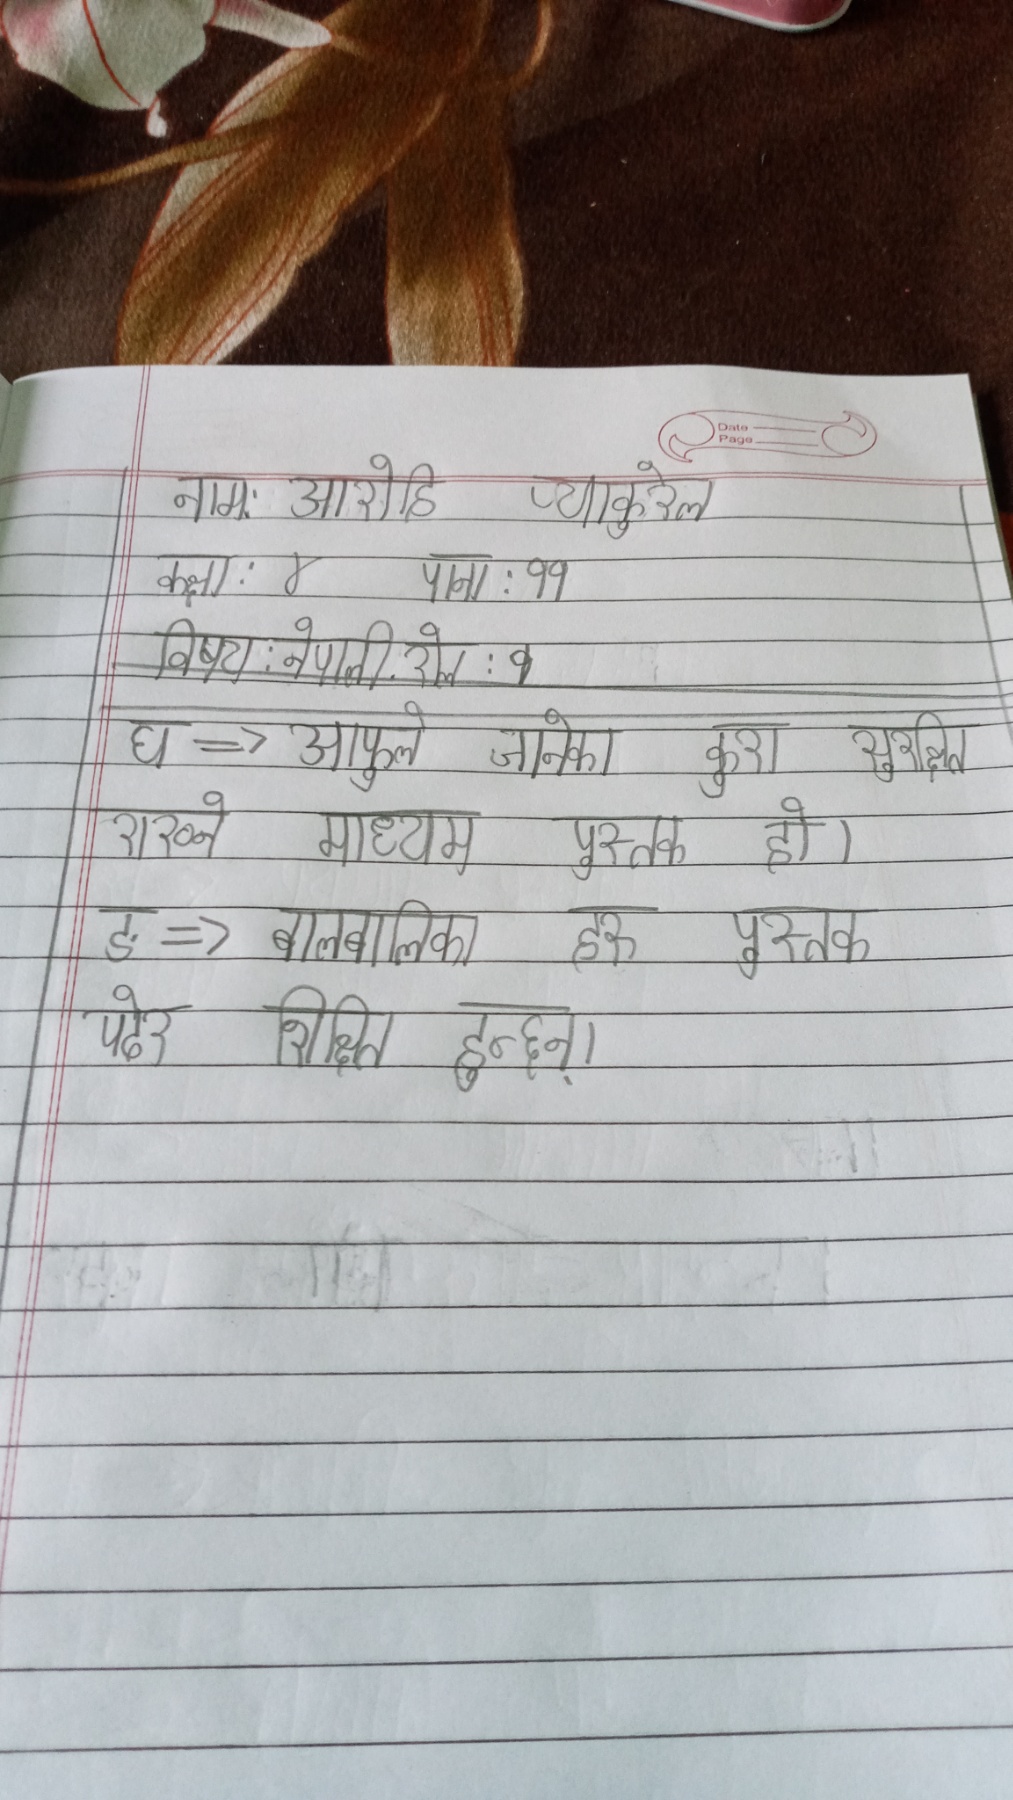 Date
Page
नाम: आरोहि प्याकुरेल
कक्षा: ४ पाना: ११
विषय: नेपाली. रोल: १
घ => आफुले जानेका कुरा सुरक्षित
राख्ने माध्यम पुस्तक हो।
ङ => बालबालिका हरू पुस्तक
पढेर शिक्षित हुन्छन्।